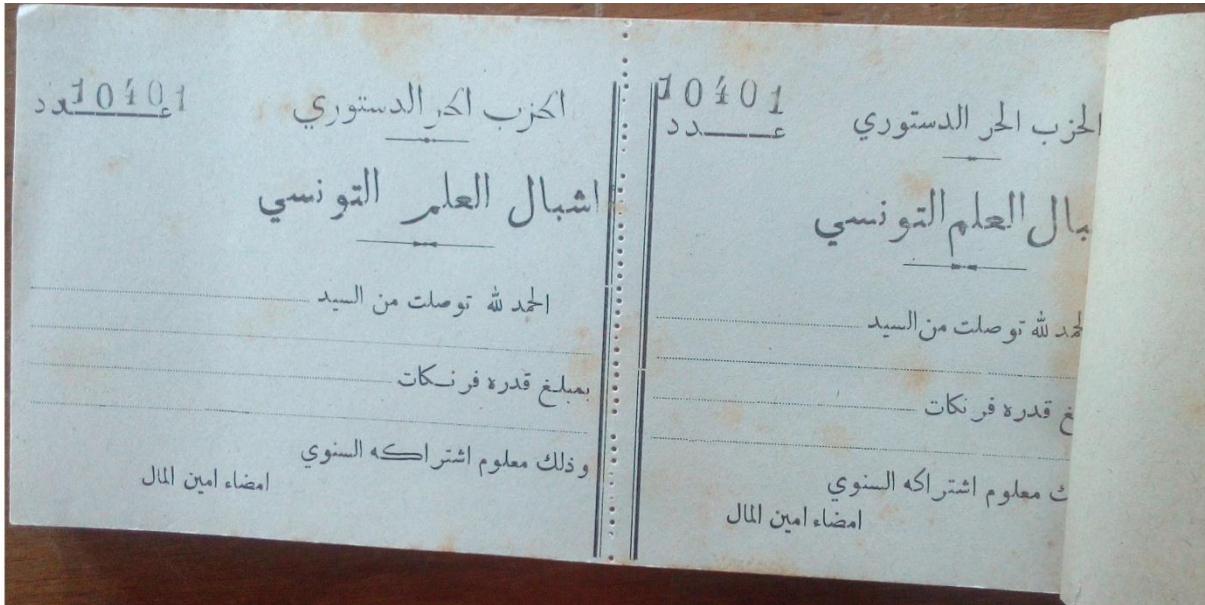 الحزب الحر الدستوري
عــــدد 10401
اشبال العلم التونسي
الحمد لله توصلت من السيد
بمبلغ قدره فرنكات
وذلك معلوم اشتراكه السنوي
امضاء امين المال
الحزب الحر الدستوري
عــــدد 10401
بال العلم التونسي
لحمد لله توصلت من السيد
غ قدره فرنكات
ك معلوم اشتراكه السنوي
امضاء امين المال